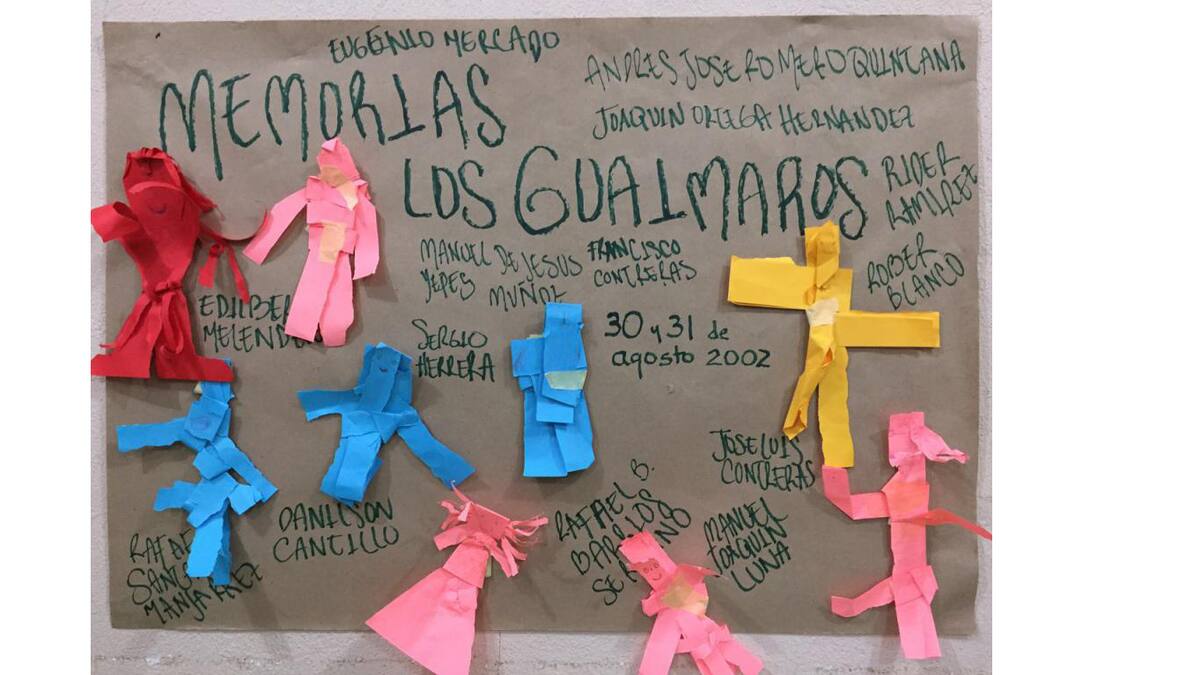 EUGENIO MERCADO
MEMORIAS
LOS GUAIMAROS
ANDRES JOSE ROMERO QUINTANA
JOAQUIN ORTEGA HERNANDEZ
RIDER
RAMIREZ
ROBER
BLANCO
MANUEL DE JESUS
YEPES MUÑOZ
FRANCISCO
CONTRERAS
30 y 31 de
agosto 2002
EDILBER
MELENDE
SERGIO
HERRERA
DANILSON
CANTILLO
RAFAE
MANJARREZ
RAFAEL B.
BARRIOS
SE
JOSE LUIS
CONTRERAS
MANUEL
JOAQUIN
LUNA